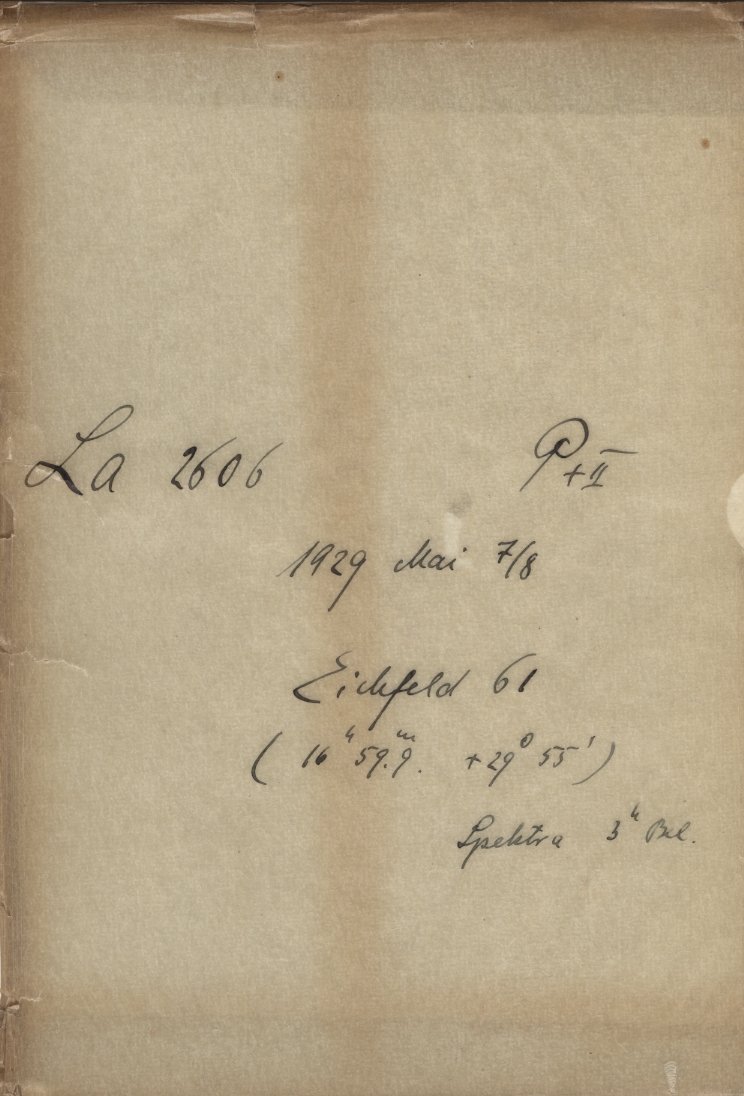 La 2606 P+II
1929 Mai 7/8
Eichfeld 61
( 16ʰ 59.ᵐ9. +29⁰ 55' )
Spektra 3ʰ Bel.